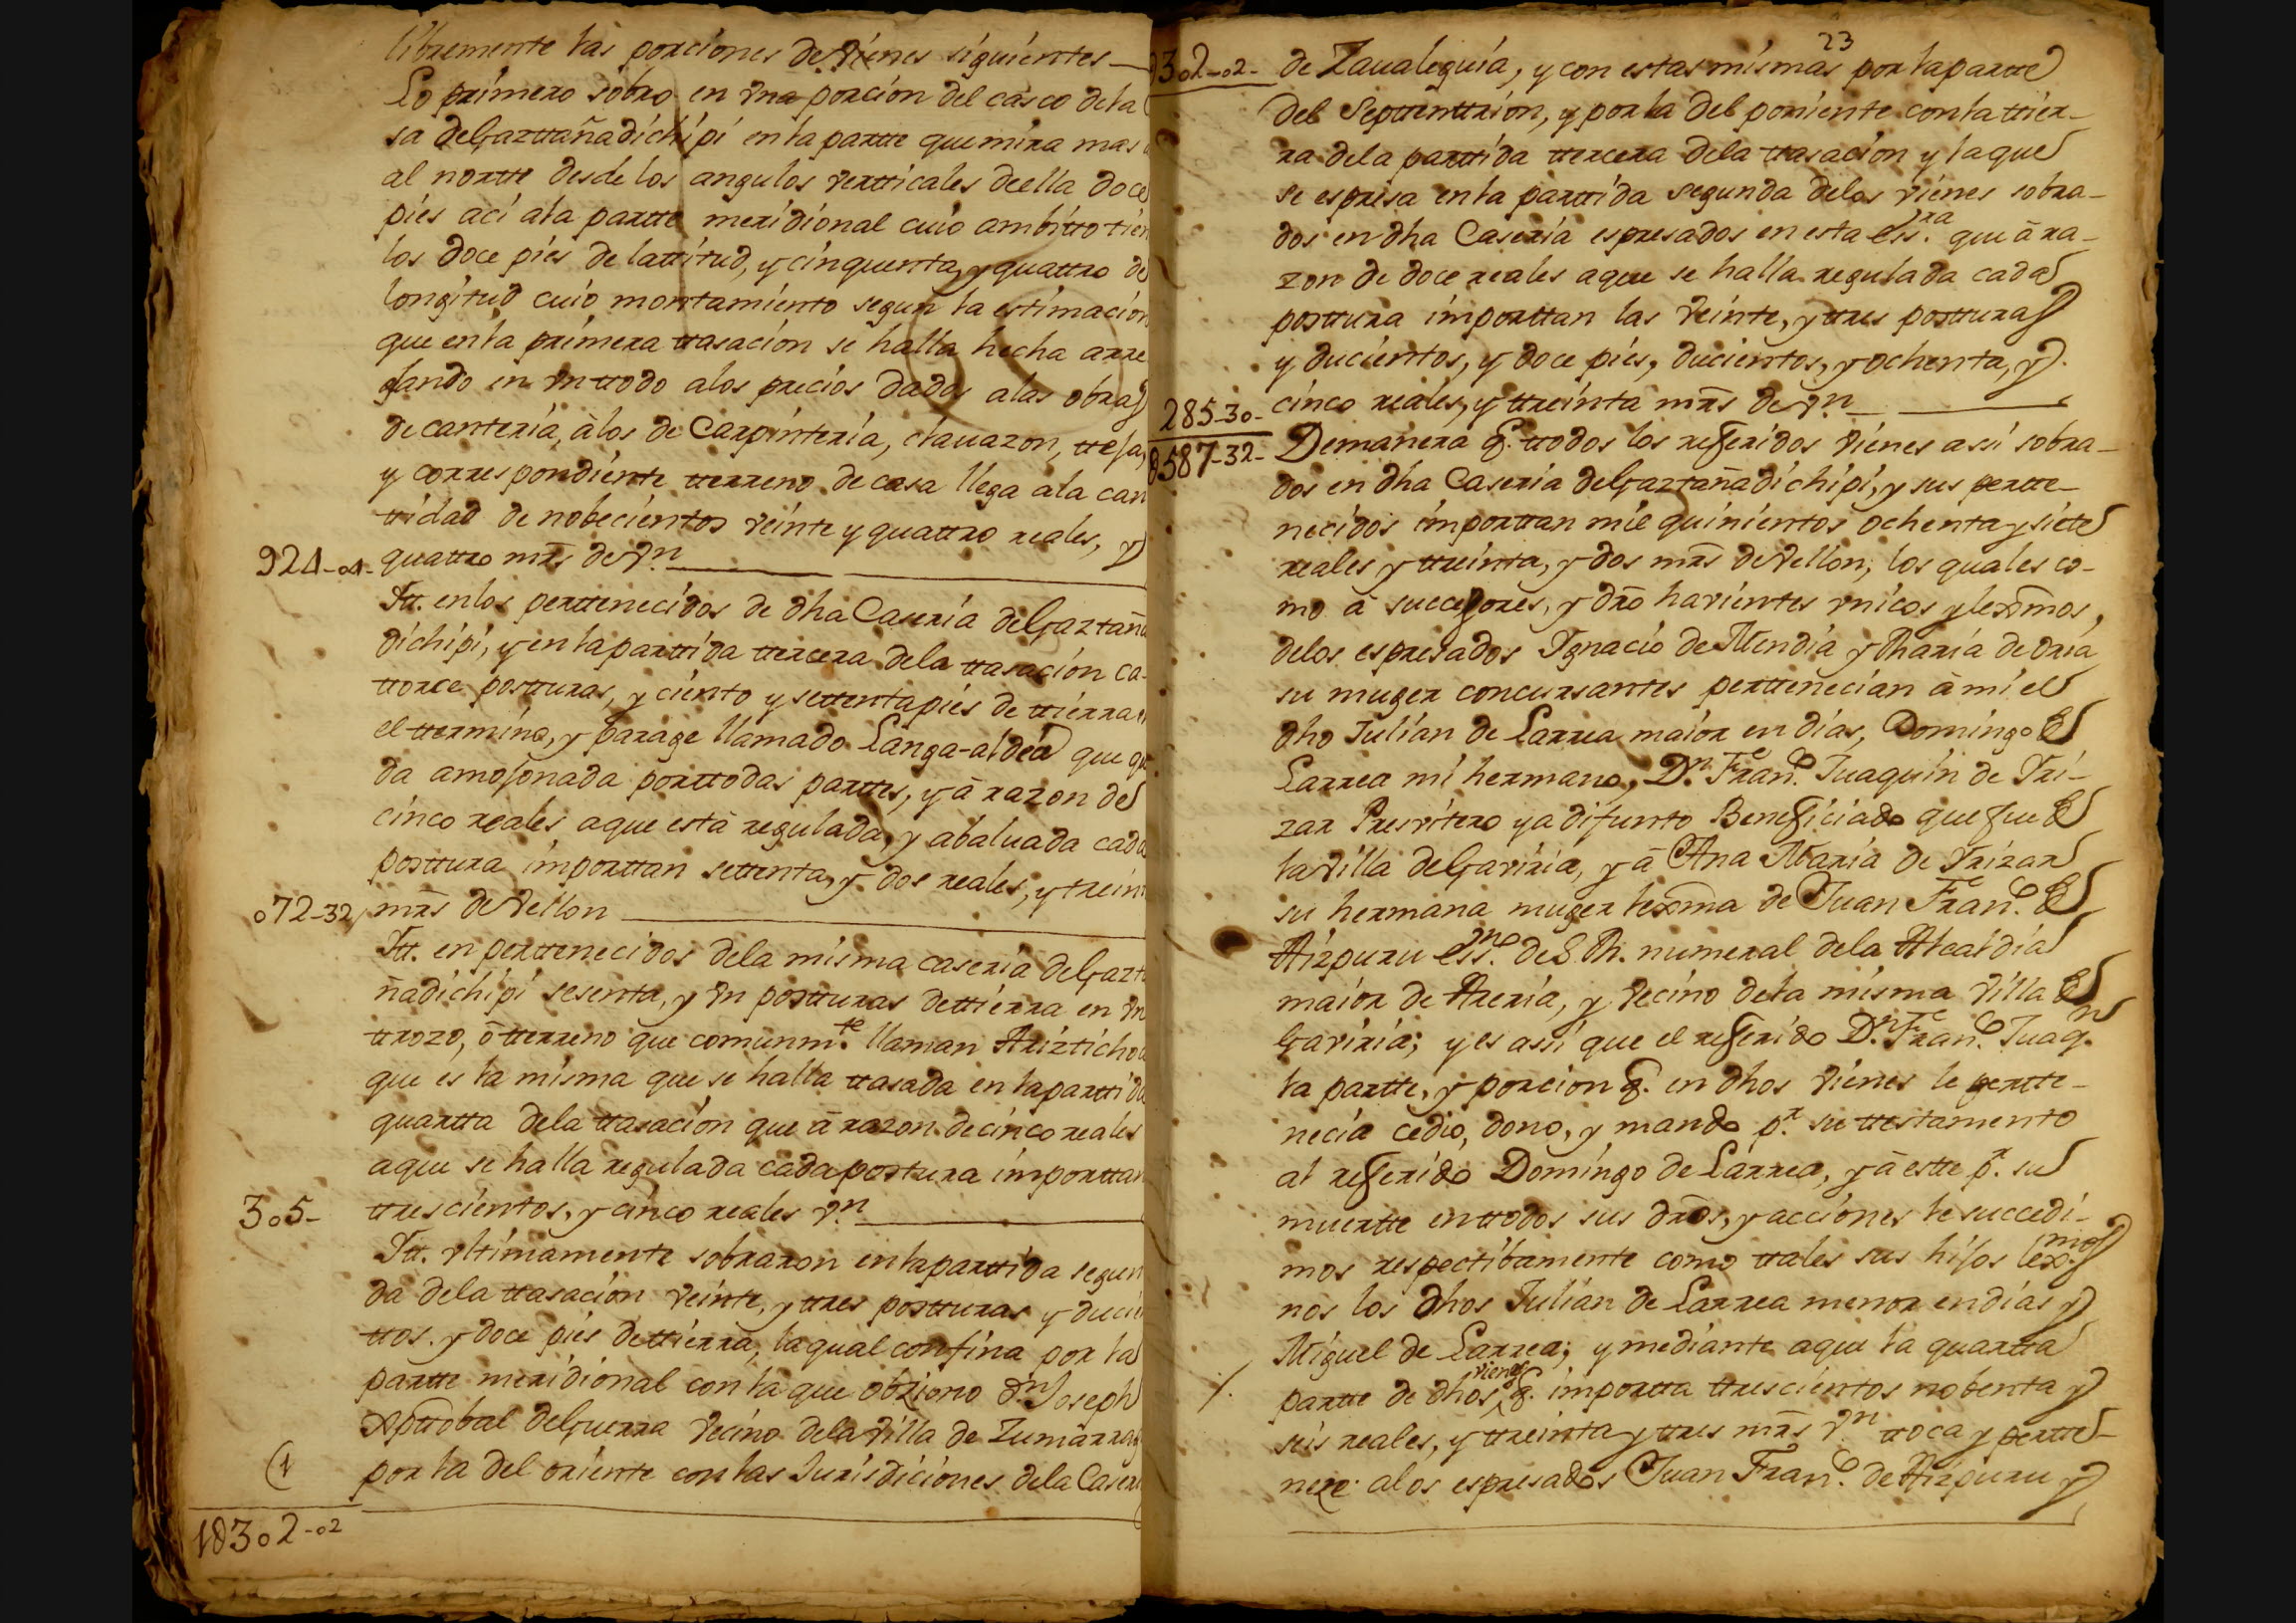 libremente las porciones de vienes siguientes
Lo primero sobro en vna porcion del casco dela
sa de Gazttañadichipi en la partte que mira mas
al nortte desde los angulos vertticales de ella doce
pies aci ala partte meridional cuio ambitto tien
los doce pies de lattitud, y cinquenta, y quattro de
longitud cuio montamiento segun la estimacion
que en la primera ttasacion se halla hecha arre
glando en vn ttodo alos precios dados alas obras
de canteria, à los de Carpinteria, clauazon, tteja,
y correspondiente tterreno de casa llega ala can
ttidad de nobecientos veinte y quattro reales, y
924-04- quattro mrs̃ de v.n
Itt. en los perttenecidos de dha Caseria de Gaztañ
dichipi, y en la parttida ttercera dela ttasacion ca-
ttorce postturas, y ciento y settenta pies de ttierra
el ttermino, y parage llamado Langa-aldea que
da amojonada por ttodas parttes, y à razon de
cinco reales aque està regulada, y abaluada cada
posttura importtan settenta, y dos reales, y trein
072-32 mrs̃ de vellon
Itt. en perttenecidos dela misma caseria de Gazt
ñadichipi sesenta, y vn postturas de ttierra en vn
ttrozo, ò tterreno que comunm.te llaman Arizticho
que es la misma que se halla ttasada en la parttida
quartta dela ttasacion que à razon de cinco reales
aque se halla regulada cada postura importtan
305- ttrescientos, y cinco reales v.n
Itt. vltimamente sobraron en la parttida segun
da dela ttasacion veinte, y ttres postturas y ducien
ttos. y doce pies de ttierra, la qual confina por la
partte meridional con la que obtiono d.n Joseph
Xpttobal de Guerra vecino dela villa de Zumarrag
(1 por la del oriente con las Jurisdiciones dela Caseri
1302-02
23
1302-02- de Zaualeguia, y con estas mismas por la partte
del Septtenttrion, y por la del poniente con la ttier-
ra dela parttida ttercera dela ttasacion y la que
se espresa en la parttida segunda delos vienes sobra-
dos en dha Caseria espresados en esta ess.ra que à ra-
zon de doce reales aque se halla regulada cada
posttura importtan las veinte, y ttres postturas
y ducientos, y doce pies, ducientos, y ochenta, y
285-30- cinco reales, y ttreinta mrs̃ de v.n
1587-32- Demanera q. ttodos los referidos vienes assi sobra-
dos en dha Caseria de Gaztañadichipi, y sus pertte-
necidos importtan mil quinientos ochenta y siete
reales y ttreinta, y dos mrs̃ de vellon, los quales co-
mo à successores, y dr̃o havientes vnicos y lexm̃os,
delos espresados Ignacio de Mendia y Maria de Oria
su muger concursantes perttenecian à mi el
dho Julian de Larrea maior en dias, Domingo de
Larrea mi hermano, D.n Fran.co Juaquin de Iri-
zar Presvitero ya difunto Beneficiado que fue de
la villa de Gaviria, y à Ana Maria de Irizar
su hermana muger lexm̃a de Juan Fran.co de
Aizpuru ess.no de S.M. numeral dela Alcaldia
maior de Areria, y vecino dela misma villa de
Gaviria; y es assi que el referido D.n Fran.co Juaq.n
la partte, y porcion q. en dhos vienes le pertte-
necia cedio, dono, y mando p.r su ttestamento
al referido Domingo de Larrea, y à estte p.r su
muertte en ttodos sus dr̃os, y acciones le succedi-
mos respectibamente como ttales sus hijos lex.mos
nos los dhos Julian de Larrea menor en dias y
Miguel de Larrea; y mediante aque la quartta
partte de dhos vienes q. importta ttrescientos nobenta y
seis reales, y ttreinta y ttres mrs̃ v.n ttoca y pertte-
nece alos espresados Juan Fran.co de Aizpuru y